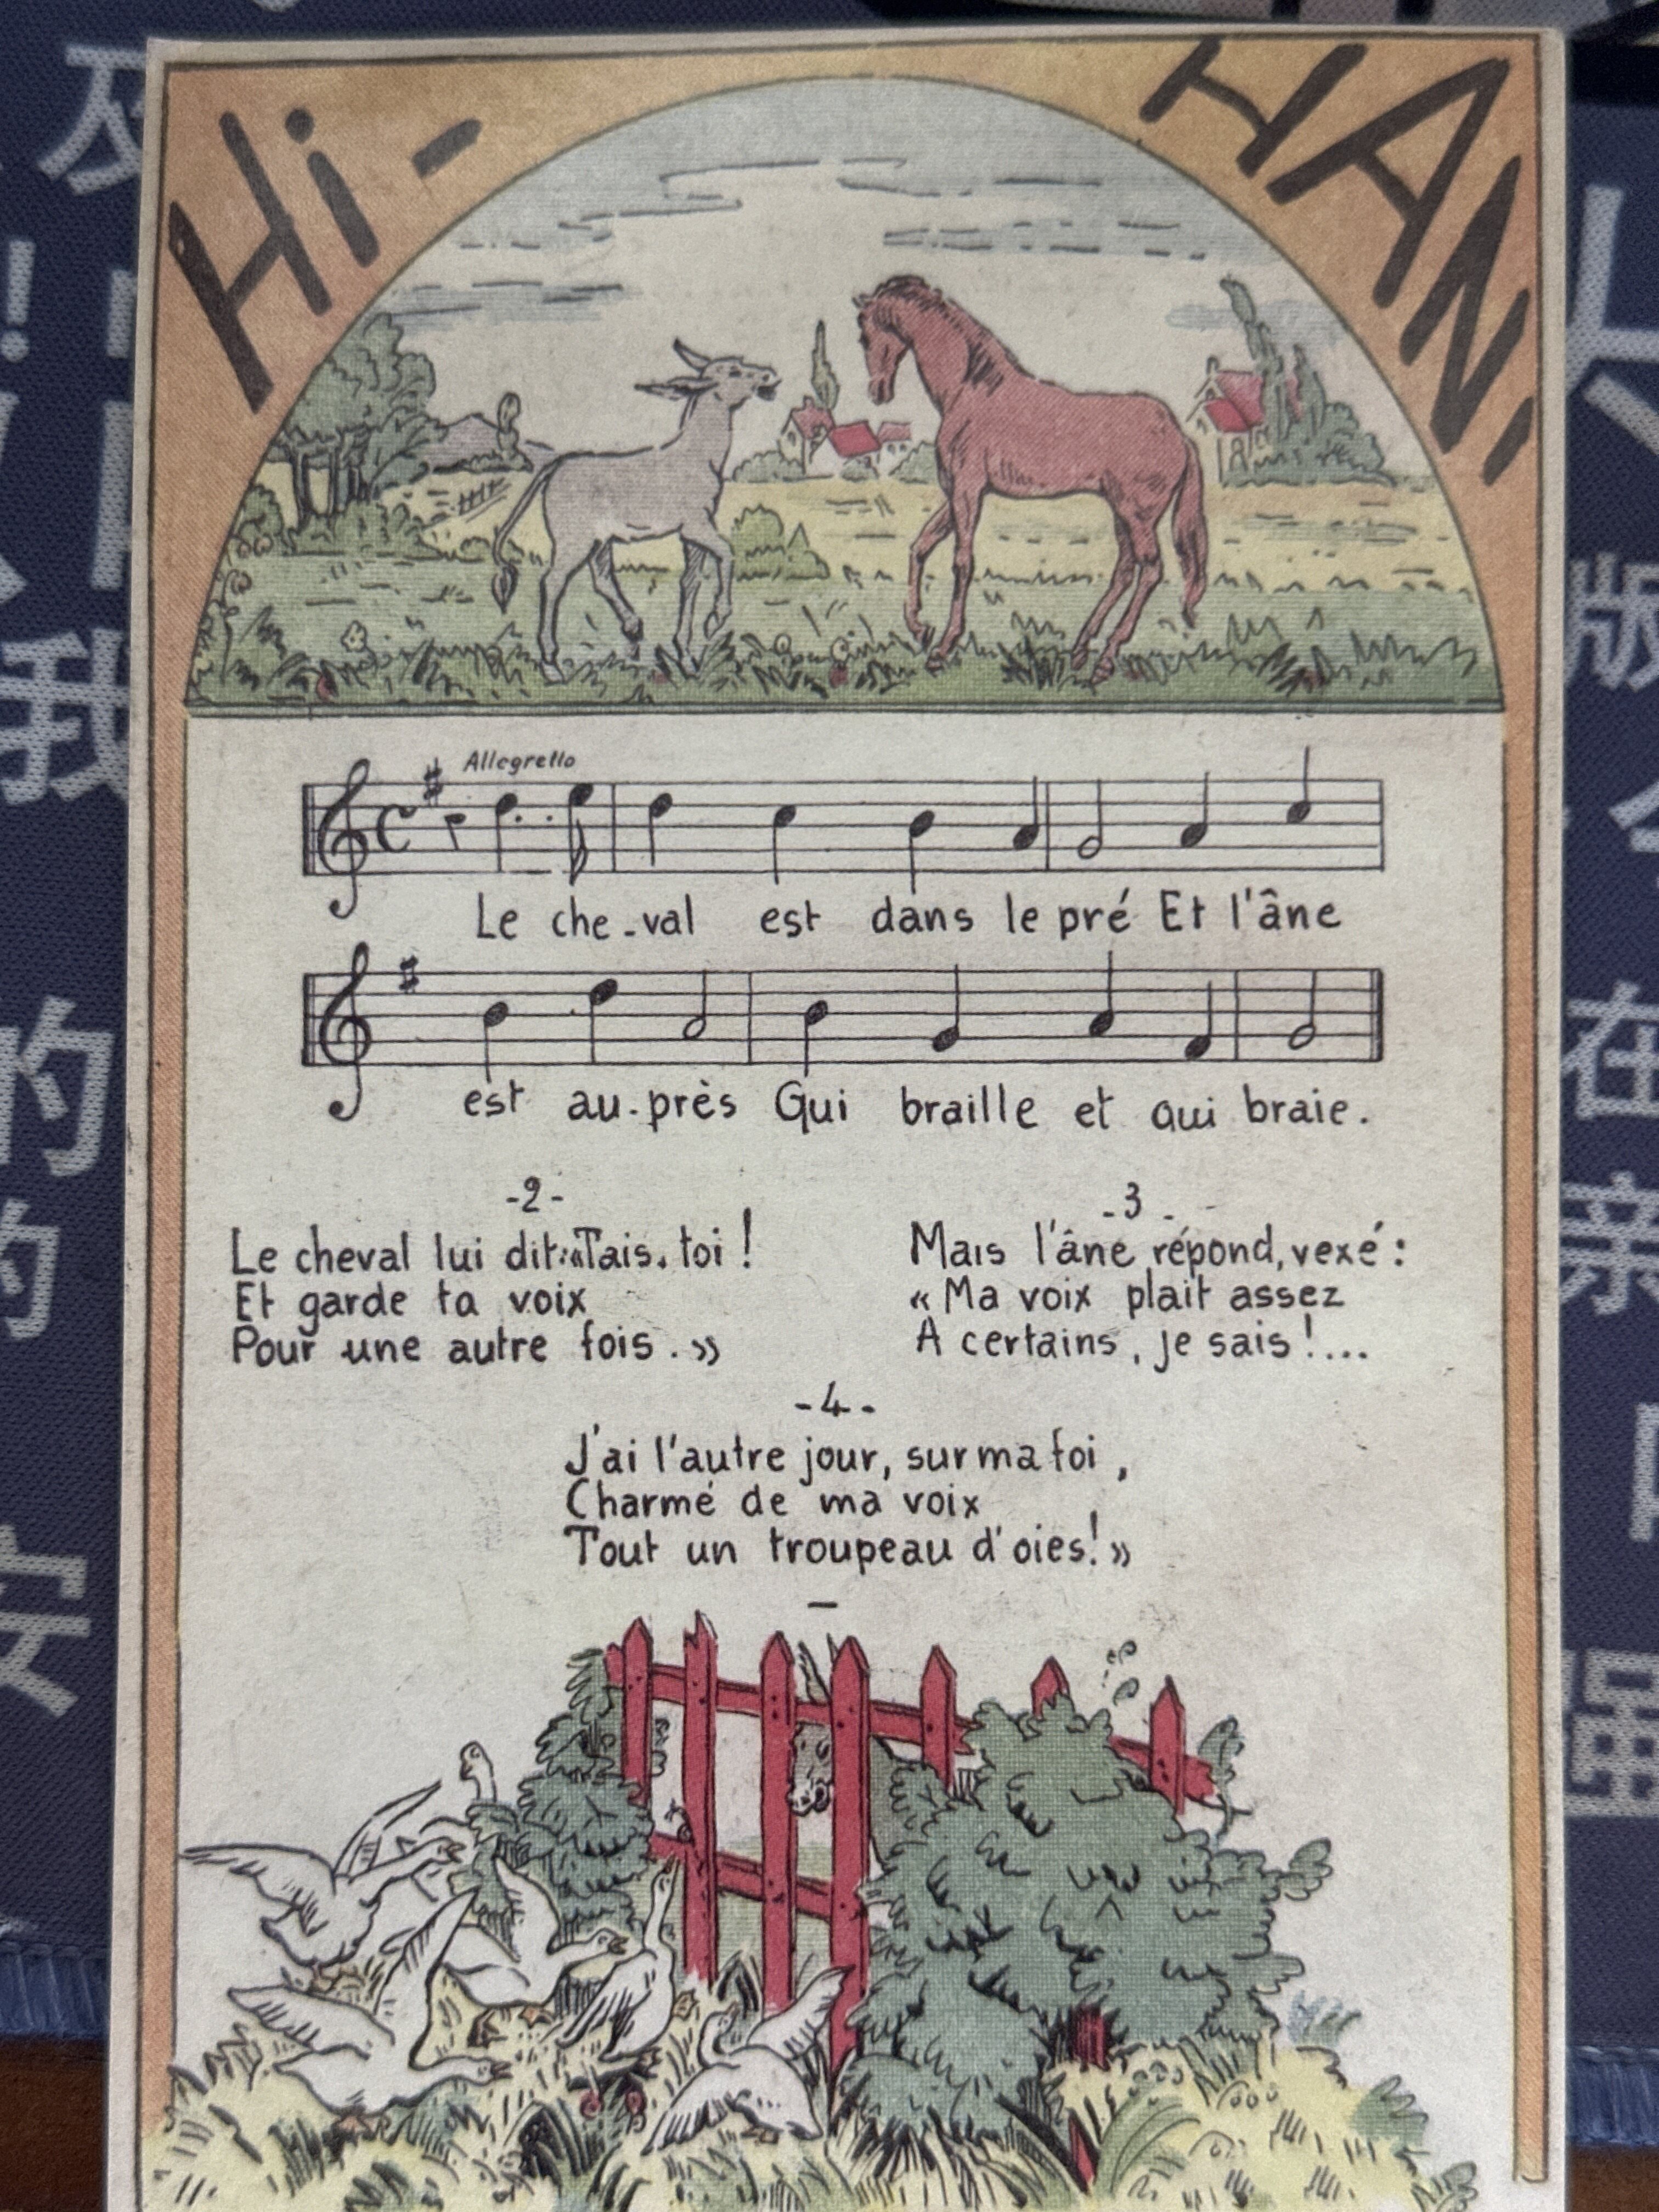 Hi - HAN!
Allegretto
Le che-val est dans le pré Et l'âne
est au-près Qui braille et qui braie.
-2-
Le cheval lui dit:«Tais-toi!
Et garde ta voix
Pour une autre fois.»
-3-
Mais l'âne répond, vexé:
«Ma voix plait assez
A certains, je sais!...
-4-
J'ai l'autre jour, sur ma foi,
Charmé de ma voix
Tout un troupeau d'oies!»
我
的
的
安
版
在
亲